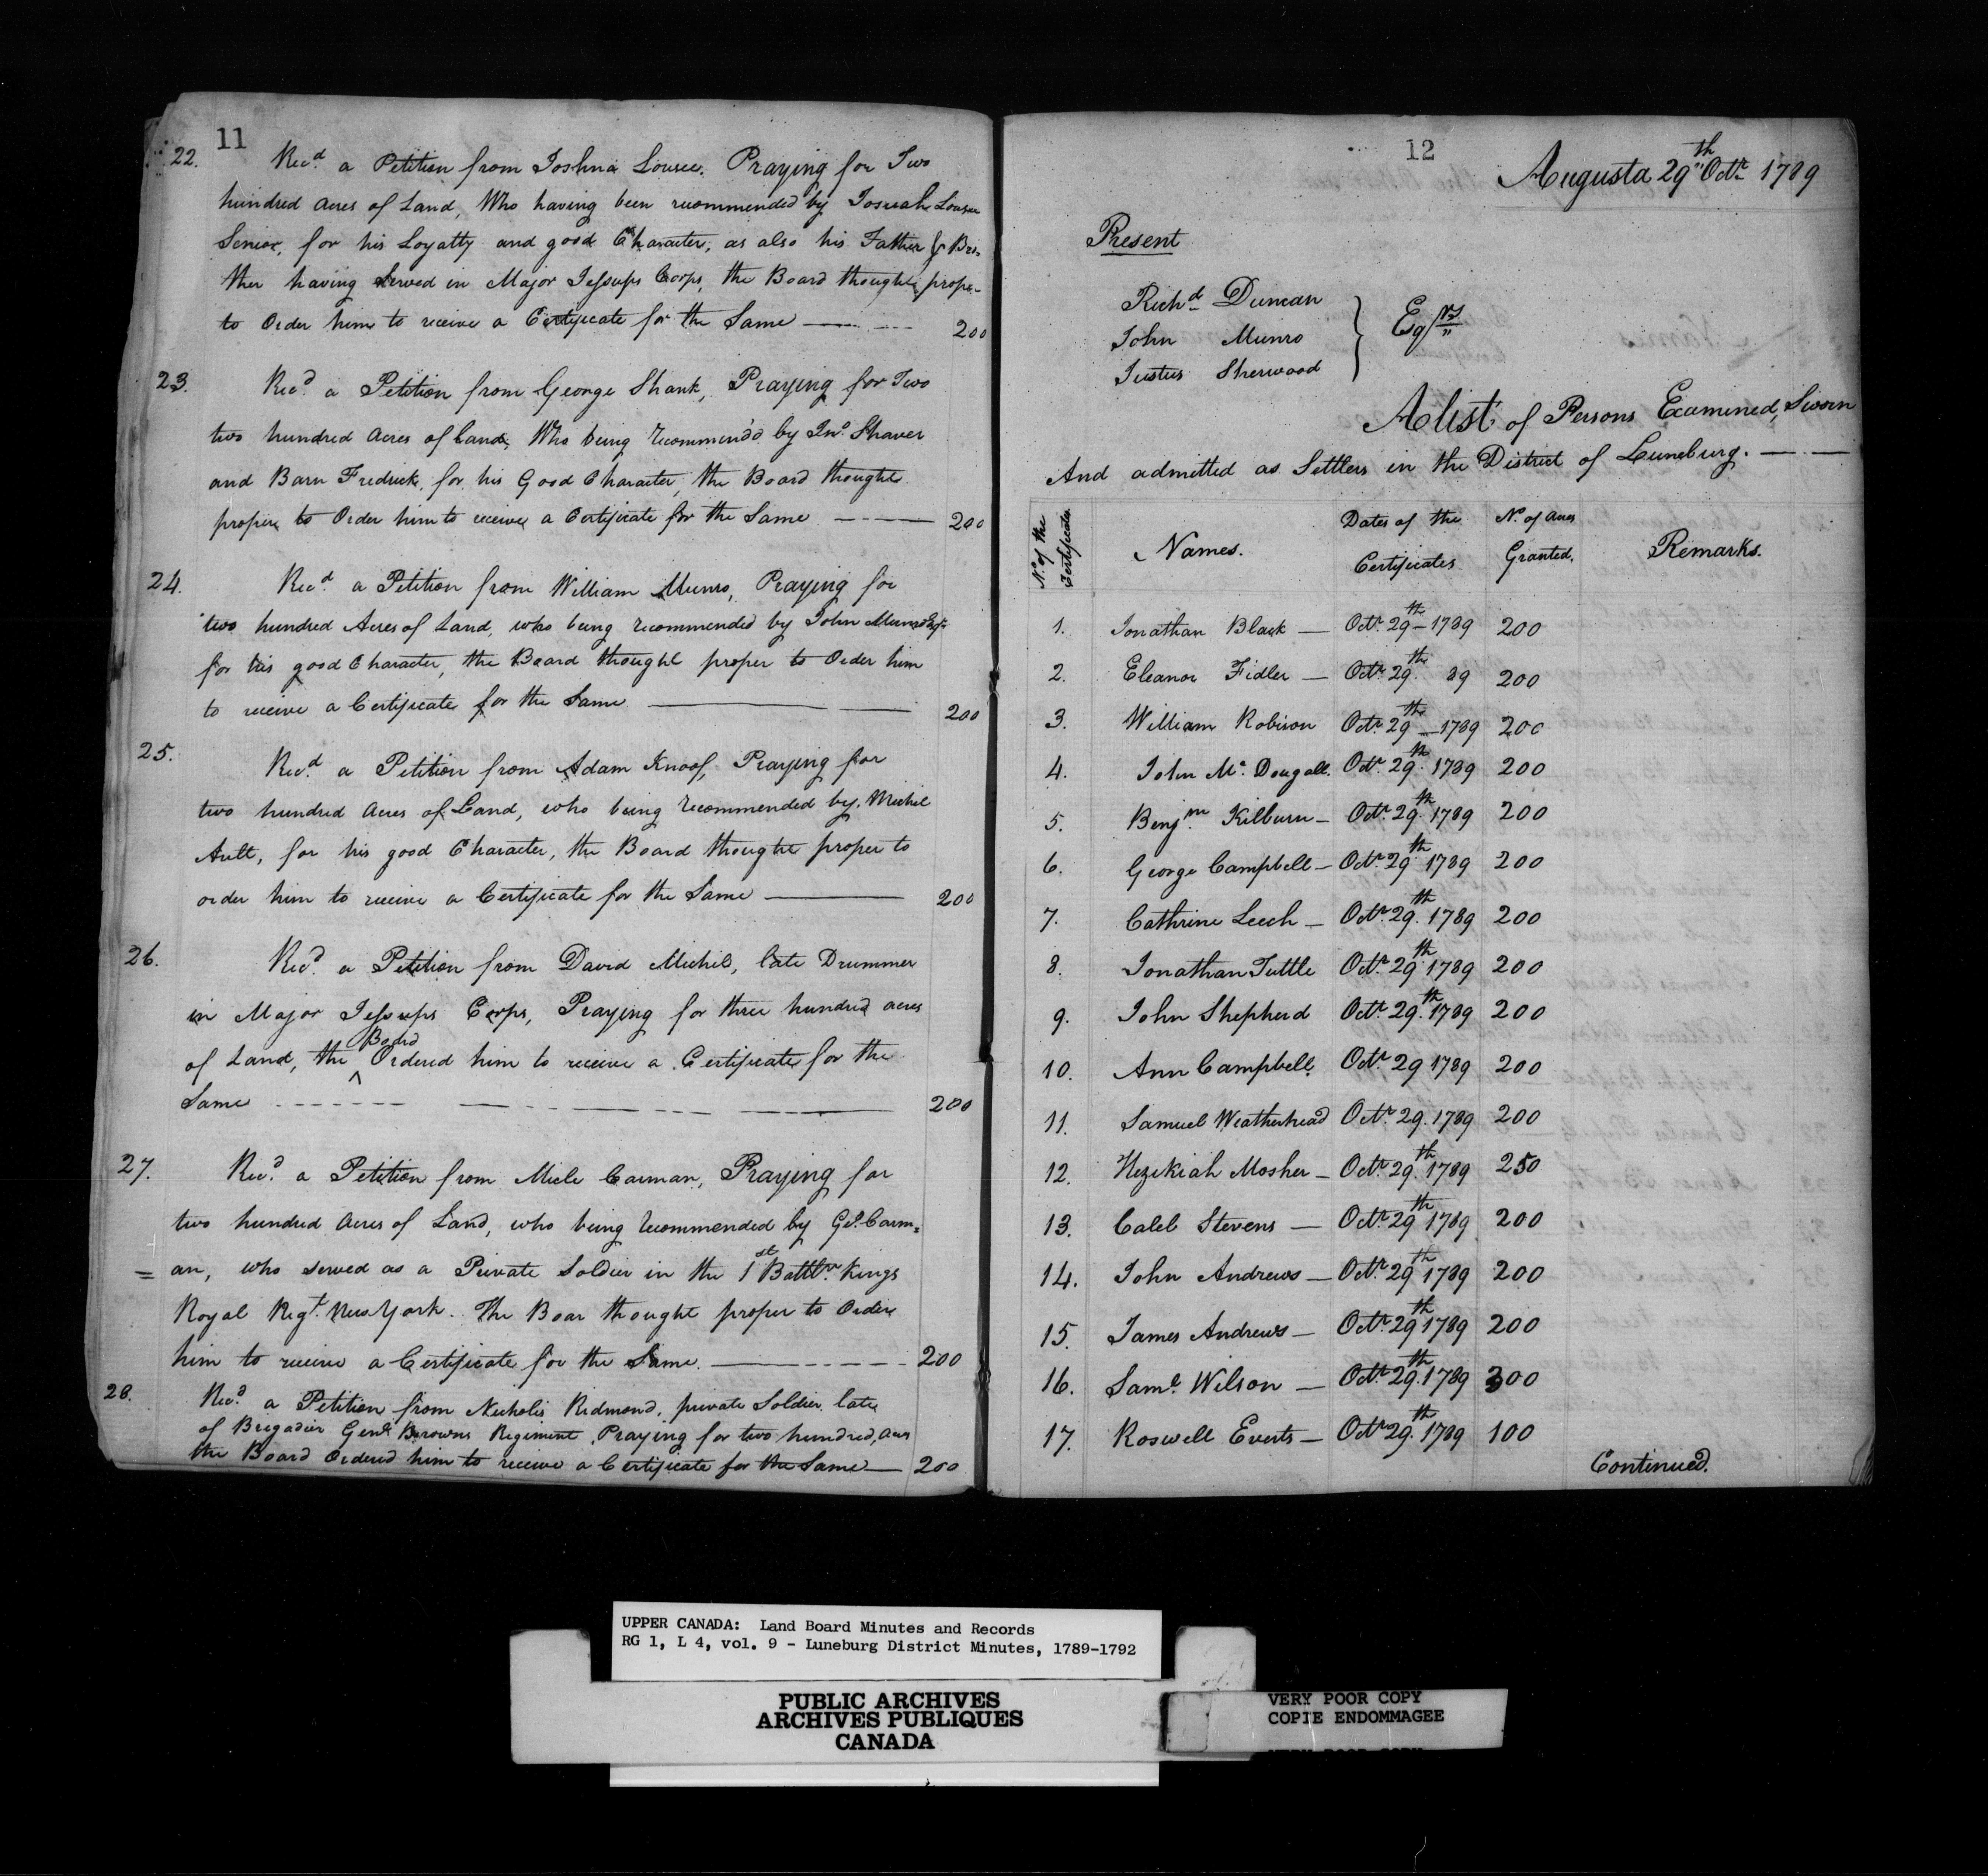 11
22. Recd. a Petition from Joshua Lousee. Praying for Two
hundred Acres of Land, Who having been recommended by Josuah Lousee
Senior, for his Loyalty and good Character, as also his Father & Bro-
ther having served in Major Jessups Corps, the Board thought proper
to Order him to receive a Certificate for the Same 200
23. Recd. a Petition from George Shank, Praying for Two
two hundred Acres of Land, Who being recommend'd by Jno. Shaver
and Barn Fredrick, for his Good Character, the Board thought
proper to Order him to receive a Certificate for the Same 200
24. Recd. a Petition from William Munro, Praying for
two hundred Acres of Land, who being recommended by John Munro Esqr.
for his good Character, the Board thought proper to Order him
to receive a Certificate for the Same 200
25. Recd. a Petition from Adam Knoof, Praying for
two hundred Acres of Land, who being recommended by Michel
Ault, for his good Character, the Board thought proper to
order him to receive a Certificate for the Same 200
26. Recd. a Petition from David Michel, late Drummer
in Major Jessups Corps, Praying for three hundred acres
of Land, the Board Ordered him to receive a Certificate for the
Same 200
27. Recd. a Petition from Micle Carman, Praying for
two hundred Acres of Land, who being recommended by Carm=
=an, who served as a Private Soldier in the 1st Battln. Kings
Royal Regt. New York. The Boar thought proper to Order
him to receive a Certificate for the Same. 200
28. Recd. a Petition from Nicholis Redmond, private Soldier late
of Brigadier Genl. Browns Regiment, Praying for two hundred, Acres
the Board Ordered him to receive a Certificate for the Same 200
12
Augusta 29th Octr. 1789
Present
Richd. Duncan
John Munro } Esqrs.
Justus Sherwood
A list of Persons Examined, Sworn
And admitted as Settlers in the District of Luneburg.
No. of the Certificates Names. Dates of the Certificates No. of Acres Granted. Remarks.
1. Jonathan Black — Octr. 29th 1789 200
2. Eleanor Fidler — Octr. 29th. 89 200
3. William Robison Octr. 29th 1789 200
4. John Mc. Dougall. Octr. 29th. 1789 200
5. Benjm. Kilburn — Octr. 29th. 1789 200
6. George Campbell — Octr. 29th. 1789 200
7. Cathrine Leech — Octr. 29th. 1789 200
8. Jonathan Tuttle Octr. 29th. 1789 200
9. John Shepherd Octr. 29th. 1789 200
10. Ann Campbell. Octr. 29 1789 200
11. Samuel Weatherhead Octr. 29. 1789 200
12. Hezekiah Mosher — Octr. 29th. 1789 250
13. Caleb Stevens — Octr. 29th 1789 200
14. John Andrews — Octr. 29th 1789 200
15. James Andrews — Octr. 29th 1789 200
16. Saml. Wilson — Octr. 29th. 1789 300
17. Roswell Everts — Octr. 29th. 1789 100
Continued.
UPPER CANADA: Land Board Minutes and Records
RG 1, L 4, vol. 9 - Luneburg District Minutes, 1789-1792
PUBLIC ARCHIVES
ARCHIVES PUBLIQUES
CANADA
VERY POOR COPY
COPIE ENDOMMAGEE